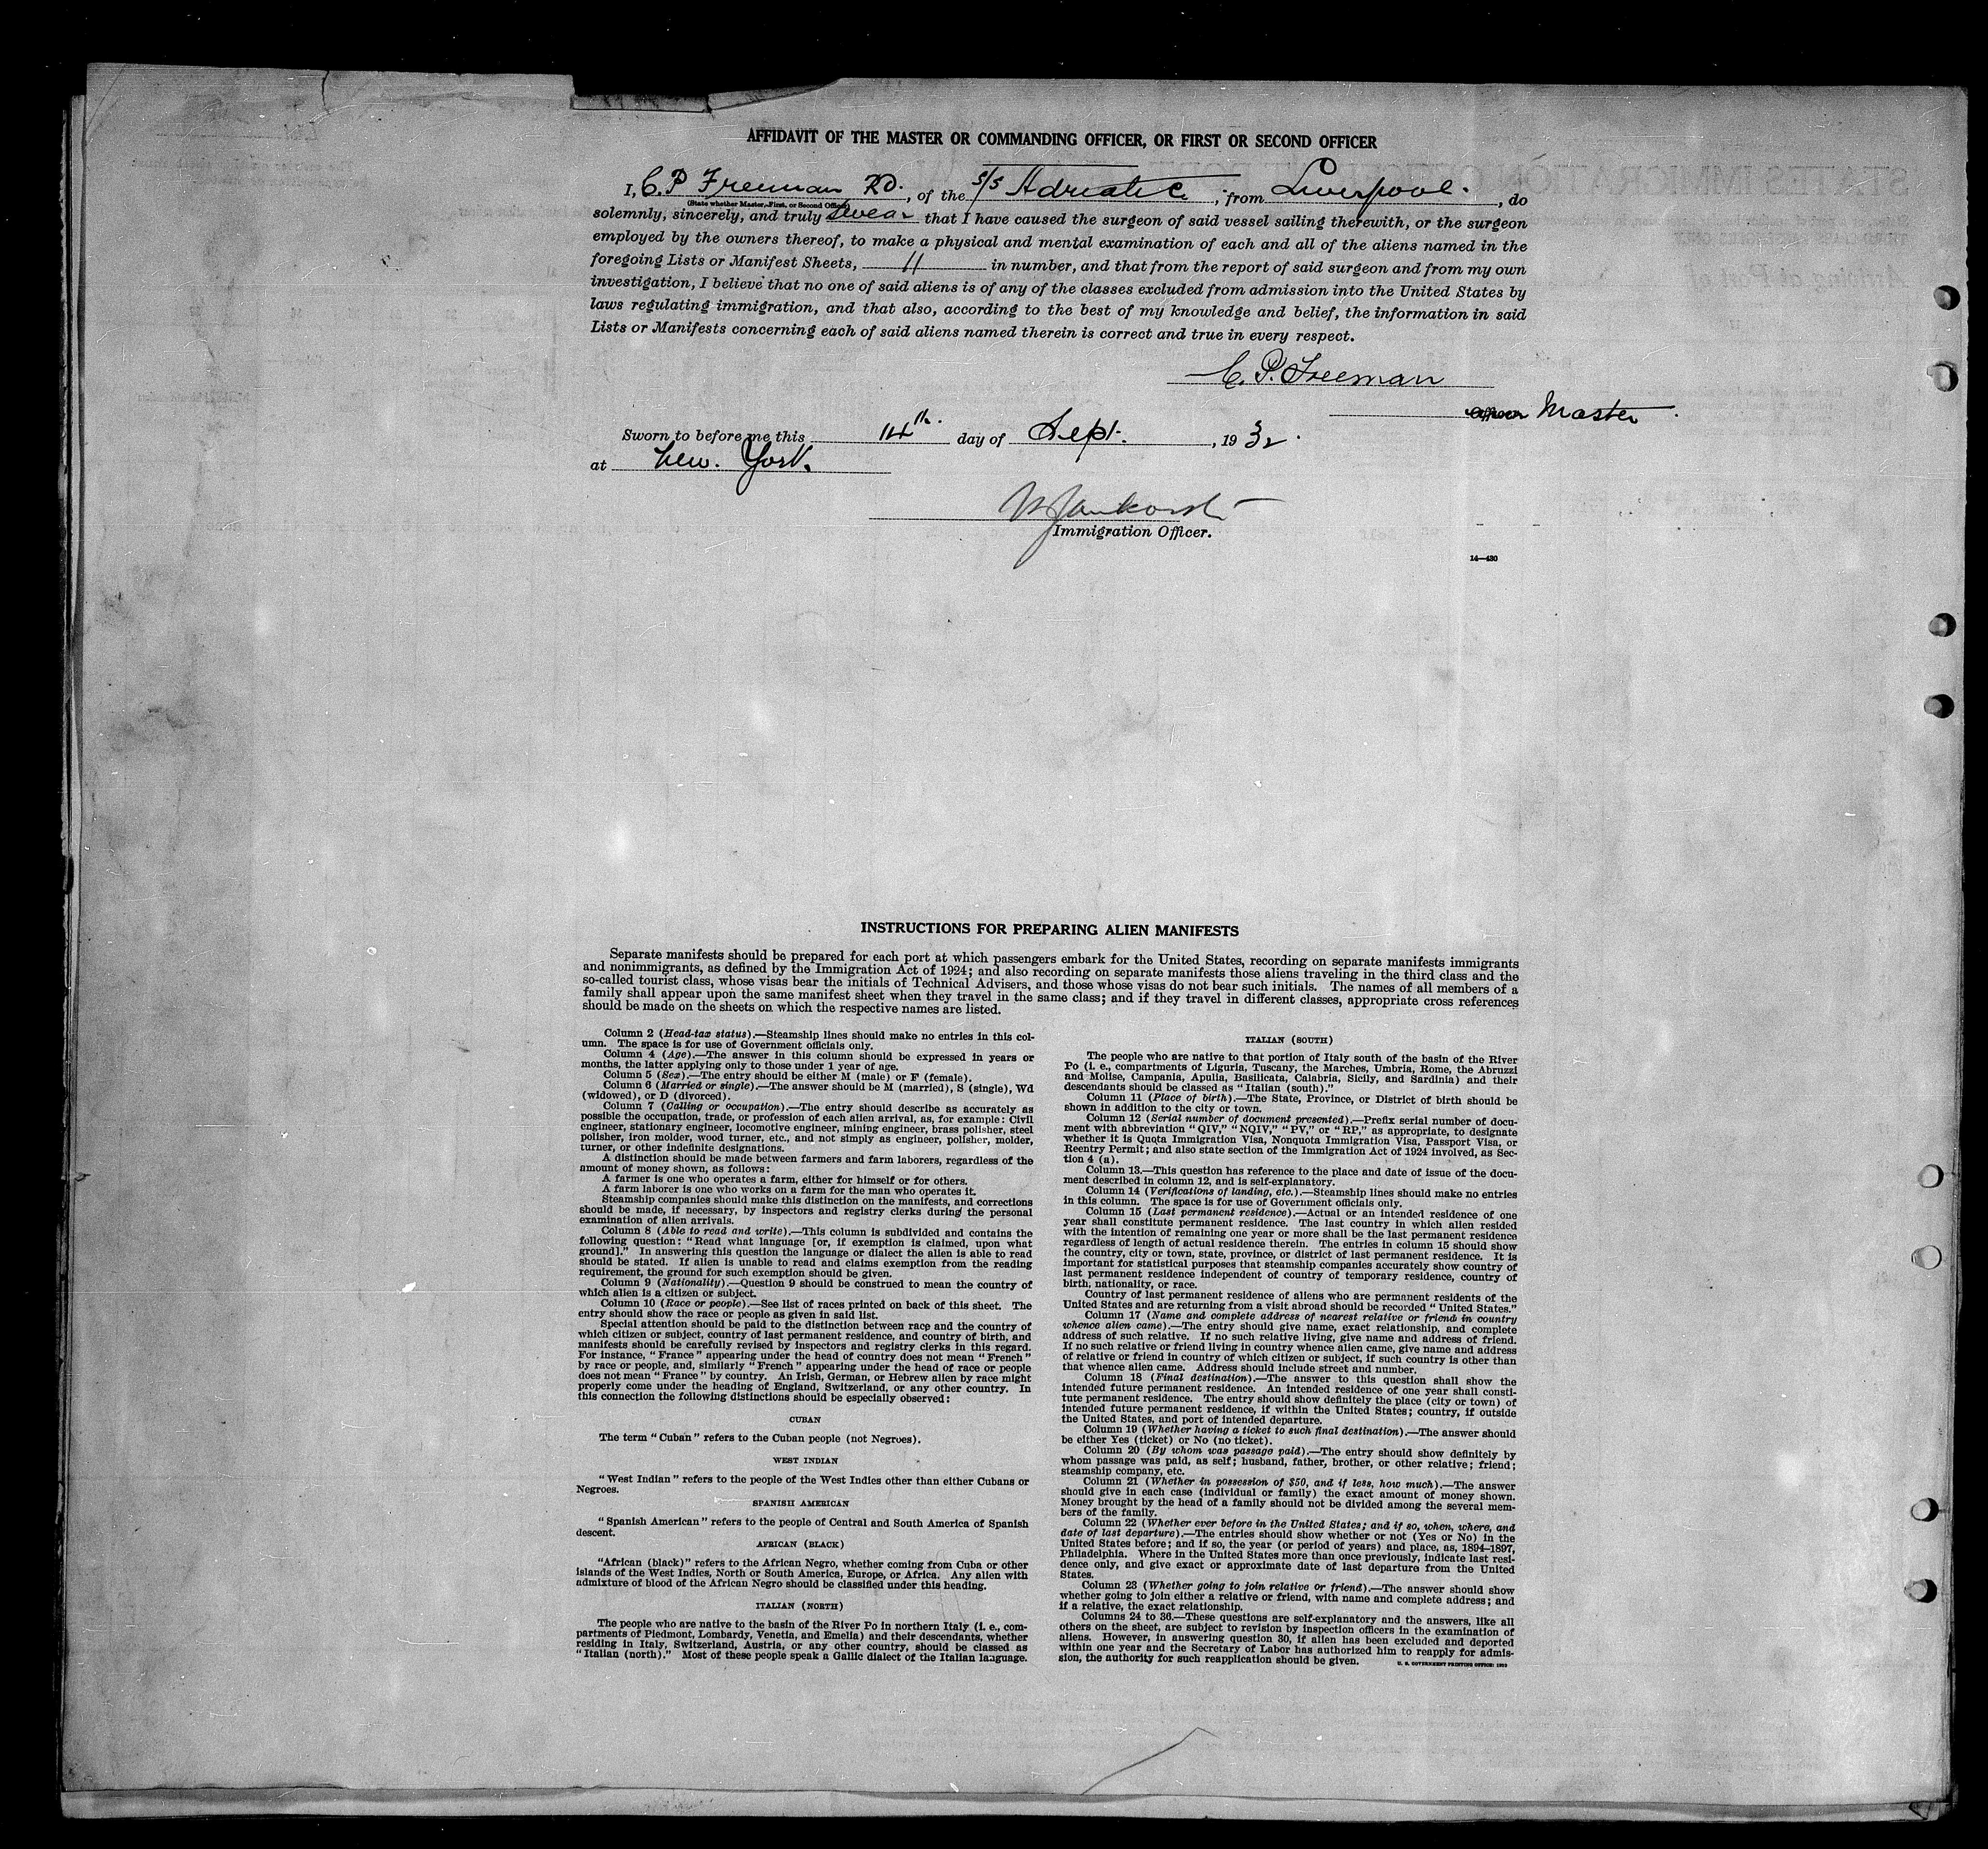 AFFIDAVIT OF THE MASTER OR COMMANDING OFFICER, OR FIRST OR SECOND OFFICER
I, C. P. Freeman RD., of the S/S Adriatic, from Liverpool., do
(State whether Master, First, or Second Officer)
solemnly, sincerely, and truly swear that I have caused the surgeon of said vessel sailing therewith, or the surgeon
employed by the owners thereof, to make a physical and mental examination of each and all of the aliens named in the
foregoing Lists or Manifest Sheets, 11 in number, and that from the report of said surgeon and from my own
investigation, I believe that no one of said aliens is of any of the classes excluded from admission into the United States by
laws regulating immigration, and that also, according to the best of my knowledge and belief, the information in said
Lists or Manifests concerning each of said aliens named therein is correct and true in every respect.
C. P. Freeman
Officer Master
Sworn to before me this 14th. day of Sept., 1932.
at New. York.
Immigration Officer.
14—430
INSTRUCTIONS FOR PREPARING ALIEN MANIFESTS
Separate manifests should be prepared for each port at which passengers embark for the United States, recording on separate manifests immigrants
and nonimmigrants, as defined by the Immigration Act of 1924; and also recording on separate manifests those aliens traveling in the third class and the
so-called tourist class, whose visas bear the initials of Technical Advisers, and those whose visas do not bear such initials. The names of all members of a
family shall appear upon the same manifest sheet when they travel in the same class; and if they travel in different classes, appropriate cross references
should be made on the sheets on which the respective names are listed.
Column 2 (Head-tax status).—Steamship lines should make no entries in this col-
umn. The space is for use of Government officials only.
Column 4 (Age).—The answer in this column should be expressed in years or
months, the latter applying only to those under 1 year of age.
Column 5 (Sex).—The entry should be either M (male) or F (female).
Column 6 (Married or single).—The answer should be M (married), S (single), Wd
(widowed), or D (divorced).
Column 7 (Calling or occupation).—The entry should describe as accurately as
possible the occupation, trade, or profession of each alien arrival, as, for example: Civil
engineer, stationary engineer, locomotive engineer, mining engineer, brass polisher, steel
polisher, iron molder, wood turner, etc., and not simply as engineer, polisher, molder,
turner, or other indefinite designations.
A distinction should be made between farmers and farm laborers, regardless of the
amount of money shown, as follows:
A farmer is one who operates a farm, either for himself or for others.
A farm laborer is one who works on a farm for the man who operates it.
Steamship companies should make this distinction on the manifests, and corrections
should be made, if necessary, by inspectors and registry clerks during the personal
examination of alien arrivals.
Column 8 (Able to read and write).—This column is subdivided and contains the
following question: "Read what language [or, if exemption is claimed, upon what
ground]." In answering this question the language or dialect the alien is able to read
should be stated. If alien is unable to read and claims exemption from the reading
requirement, the ground for such exemption should be given.
Column 9 (Nationality).—Question 9 should be construed to mean the country of
which alien is a citizen or subject.
Column 10 (Race or people).—See list of races printed on back of this sheet. The
entry should show the race or people as given in said list.
Special attention should be paid to the distinction between race and the country of
which citizen or subject, country of last permanent residence, and country of birth, and
manifests should be carefully revised by inspectors and registry clerks in this regard.
For instance, "France" appearing under the head of country does not mean "French"
by race or people, and, similarly "French" appearing under the head of race or people
does not mean "France" by country. An Irish, German, or Hebrew alien by race might
properly come under the heading of England, Switzerland, or any other country. In
this connection the following distinctions should be especially observed:
CUBAN
The term "Cuban" refers to the Cuban people (not Negroes).
WEST INDIAN
"West Indian" refers to the people of the West Indies other than either Cubans or
Negroes.
SPANISH AMERICAN
"Spanish American" refers to the people of Central and South America of Spanish
descent.
AFRICAN (BLACK)
"African (black)" refers to the African Negro, whether coming from Cuba or other
islands of the West Indies, North or South America, Europe, or Africa. Any alien with
admixture of blood of the African Negro should be classified under this heading.
ITALIAN (NORTH)
The people who are native to the basin of the River Po in northern Italy (i. e., com-
partments of Piedmont, Lombardy, Venetia, and Emelia) and their descendants, whether
residing in Italy, Switzerland, Austria, or any other country, should be classed as
"Italian (north)." Most of these people speak a Gallic dialect of the Italian language.
ITALIAN (SOUTH)
The people who are native to that portion of Italy south of the basin of the River
Po (i. e., compartments of Liguria, Tuscany, the Marches, Umbria, Rome, the Abruzzi
and Molise, Campania, Apulia, Basilicata, Calabria, Sicily, and Sardinia) and their
descendants should be classed as "Italian (south)."
Column 11 (Place of birth).—The State, Province, or District of birth should be
shown in addition to the city or town.
Column 12 (Serial number of document presented).—Prefix serial number of docu-
ment with abbreviation "QIV," "NQIV," "PV," or "RP," as appropriate, to designate
whether it is Quota Immigration Visa, Nonquota Immigration Visa, Passport Visa, or
Reentry Permit; and also state section of the Immigration Act of 1924 involved, as Sec-
tion 4 (a).
Column 13.—This question has reference to the place and date of issue of the docu-
ment described in column 12, and is self-explanatory.
Column 14 (Verifications of landing, etc.).—Steamship lines should make no entries
in this column. The space is for use of Government officials only.
Column 15 (Last permanent residence).—Actual or an intended residence of one
year shall constitute permanent residence. The last country in which alien resided
with the intention of remaining one year or more shall be the last permanent residence
regardless of length of actual residence therein. The entries in column 15 should show
the country, city or town, state, province, or district of last permanent residence. It is
important for statistical purposes that steamship companies accurately show country of
last permanent residence independent of country of temporary residence, country of
birth, nationality, or race.
Country of last permanent residence of aliens who are permanent residents of the
United States and are returning from a visit abroad should be recorded "United States."
Column 17 (Name and complete address of nearest relative or friend in country
whence alien came).—The entry should give name, exact relationship, and complete
address of such relative. If no such relative living, give name and address of friend.
If no such relative or friend living in country whence alien came, give name and address
of relative or friend in country of which citizen or subject, if such country is other than
that whence alien came. Address should include street and number.
Column 18 (Final destination).—The answer to this question shall show the
intended future permanent residence. An intended residence of one year shall consti-
tute permanent residence. The entry should show definitely the place (city or town) of
intended future permanent residence, if within the United States; country, if outside
the United States, and port of intended departure.
Column 19 (Whether having a ticket to such final destination).—The answer should
be either Yes (ticket) or No (no ticket).
Column 20 (By whom was passage paid).—The entry should show definitely by
whom passage was paid, as self; husband, father, brother, or other relative; friend;
steamship company, etc.
Column 21 (Whether in possession of $50, and if less, how much).—The answer
should give in each case (individual or family) the exact amount of money shown.
Money brought by the head of a family should not be divided among the several mem-
bers of the family.
Column 22 (Whether ever before in the United States; and if so, when, where, and
date of last departure).—The entries should show whether or not (Yes or No) in the
United States before; and if so, the year (or period of years) and place, as, 1894–1897,
Philadelphia. Where in the United States more than once previously, indicate last resi-
dence only, and give exact or approximate date of last departure from the United
States.
Column 23 (Whether going to join relative or friend).—The answer should show
whether going to join either a relative or friend, with name and complete address; and
if a relative, the exact relationship.
Columns 24 to 36.—These questions are self-explanatory and the answers, like all
others on the sheet, are subject to revision by inspection officers in the examination of
aliens. However, in answering question 30, if alien has been excluded and deported
within one year and the Secretary of Labor has authorized him to reapply for admis-
sion, the authority for such reapplication should be given.
U. S. GOVERNMENT PRINTING OFFICE: